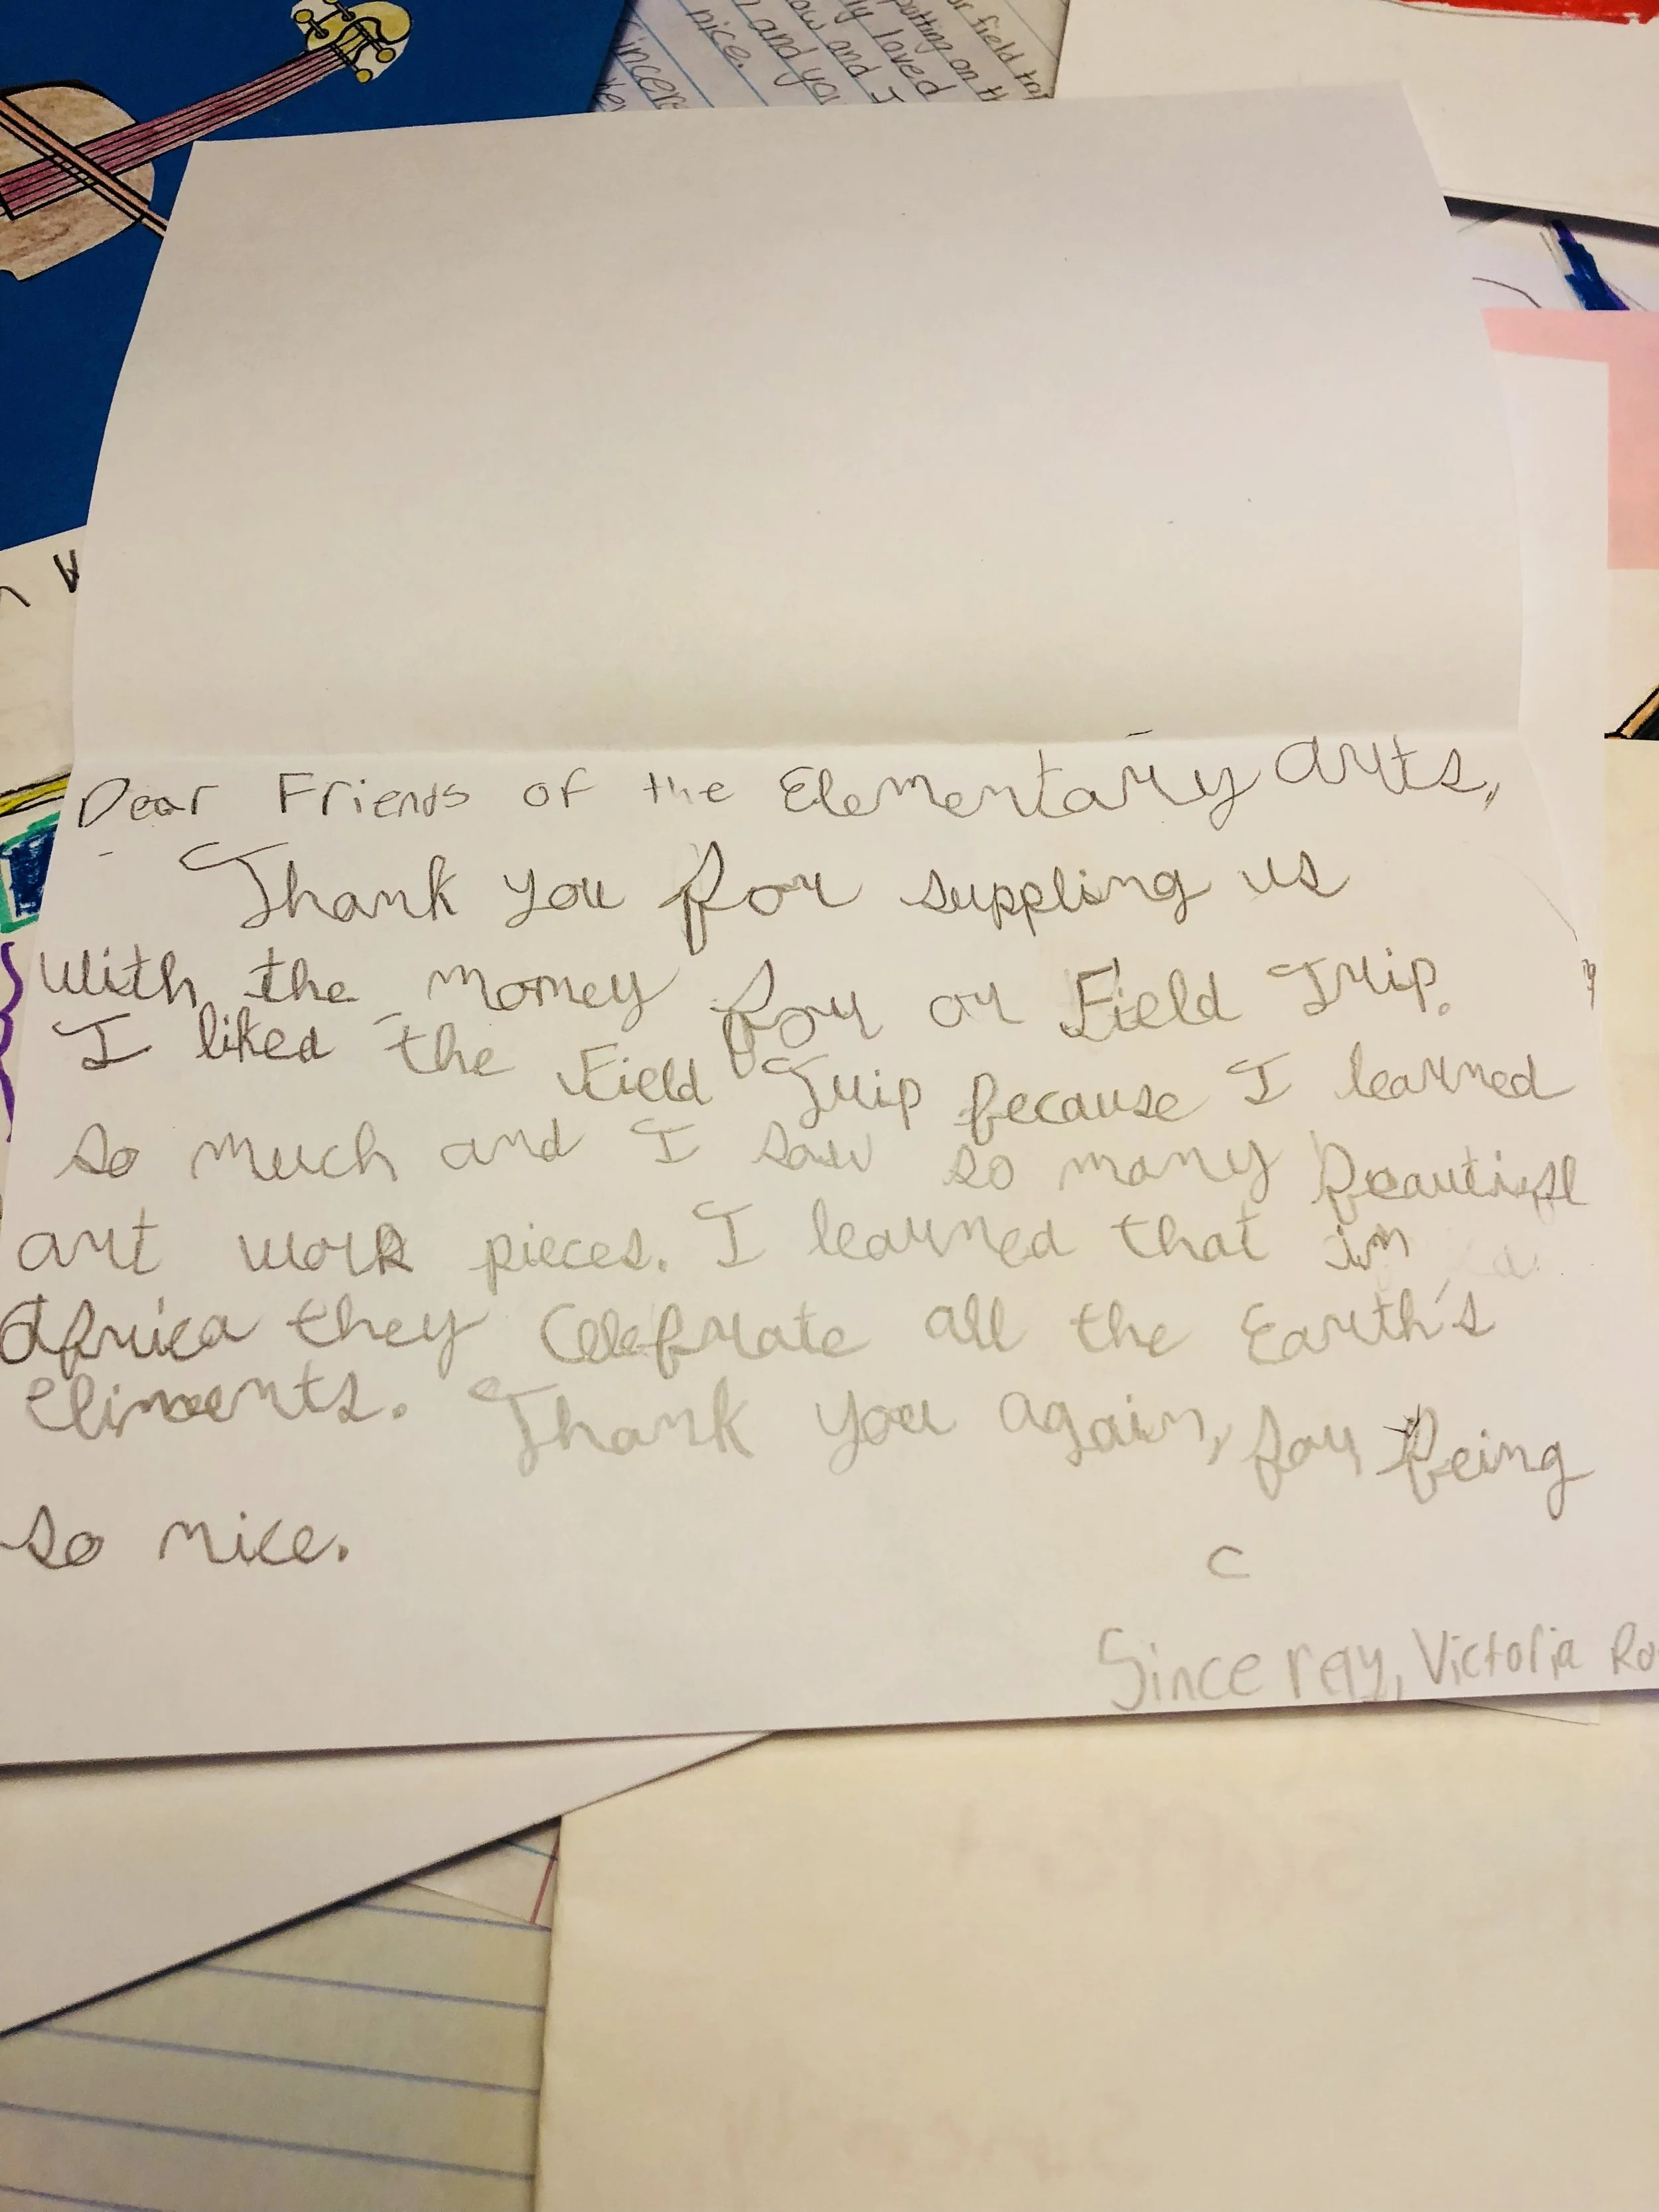 or field
putting on
ly loved
ow and I
and you
nice.
Dear Friends of the Elementary arts,
Thank you for suppling us
with the money for or Field Trip.
I liked the Field Trip because I learned
so much and I saw so many beautifl
art work pieces. I learned that in
africa they Celebrate all the Earth's
eliments. Thank you again, for being
so nice.
c
Sinceray, Victoria Ro